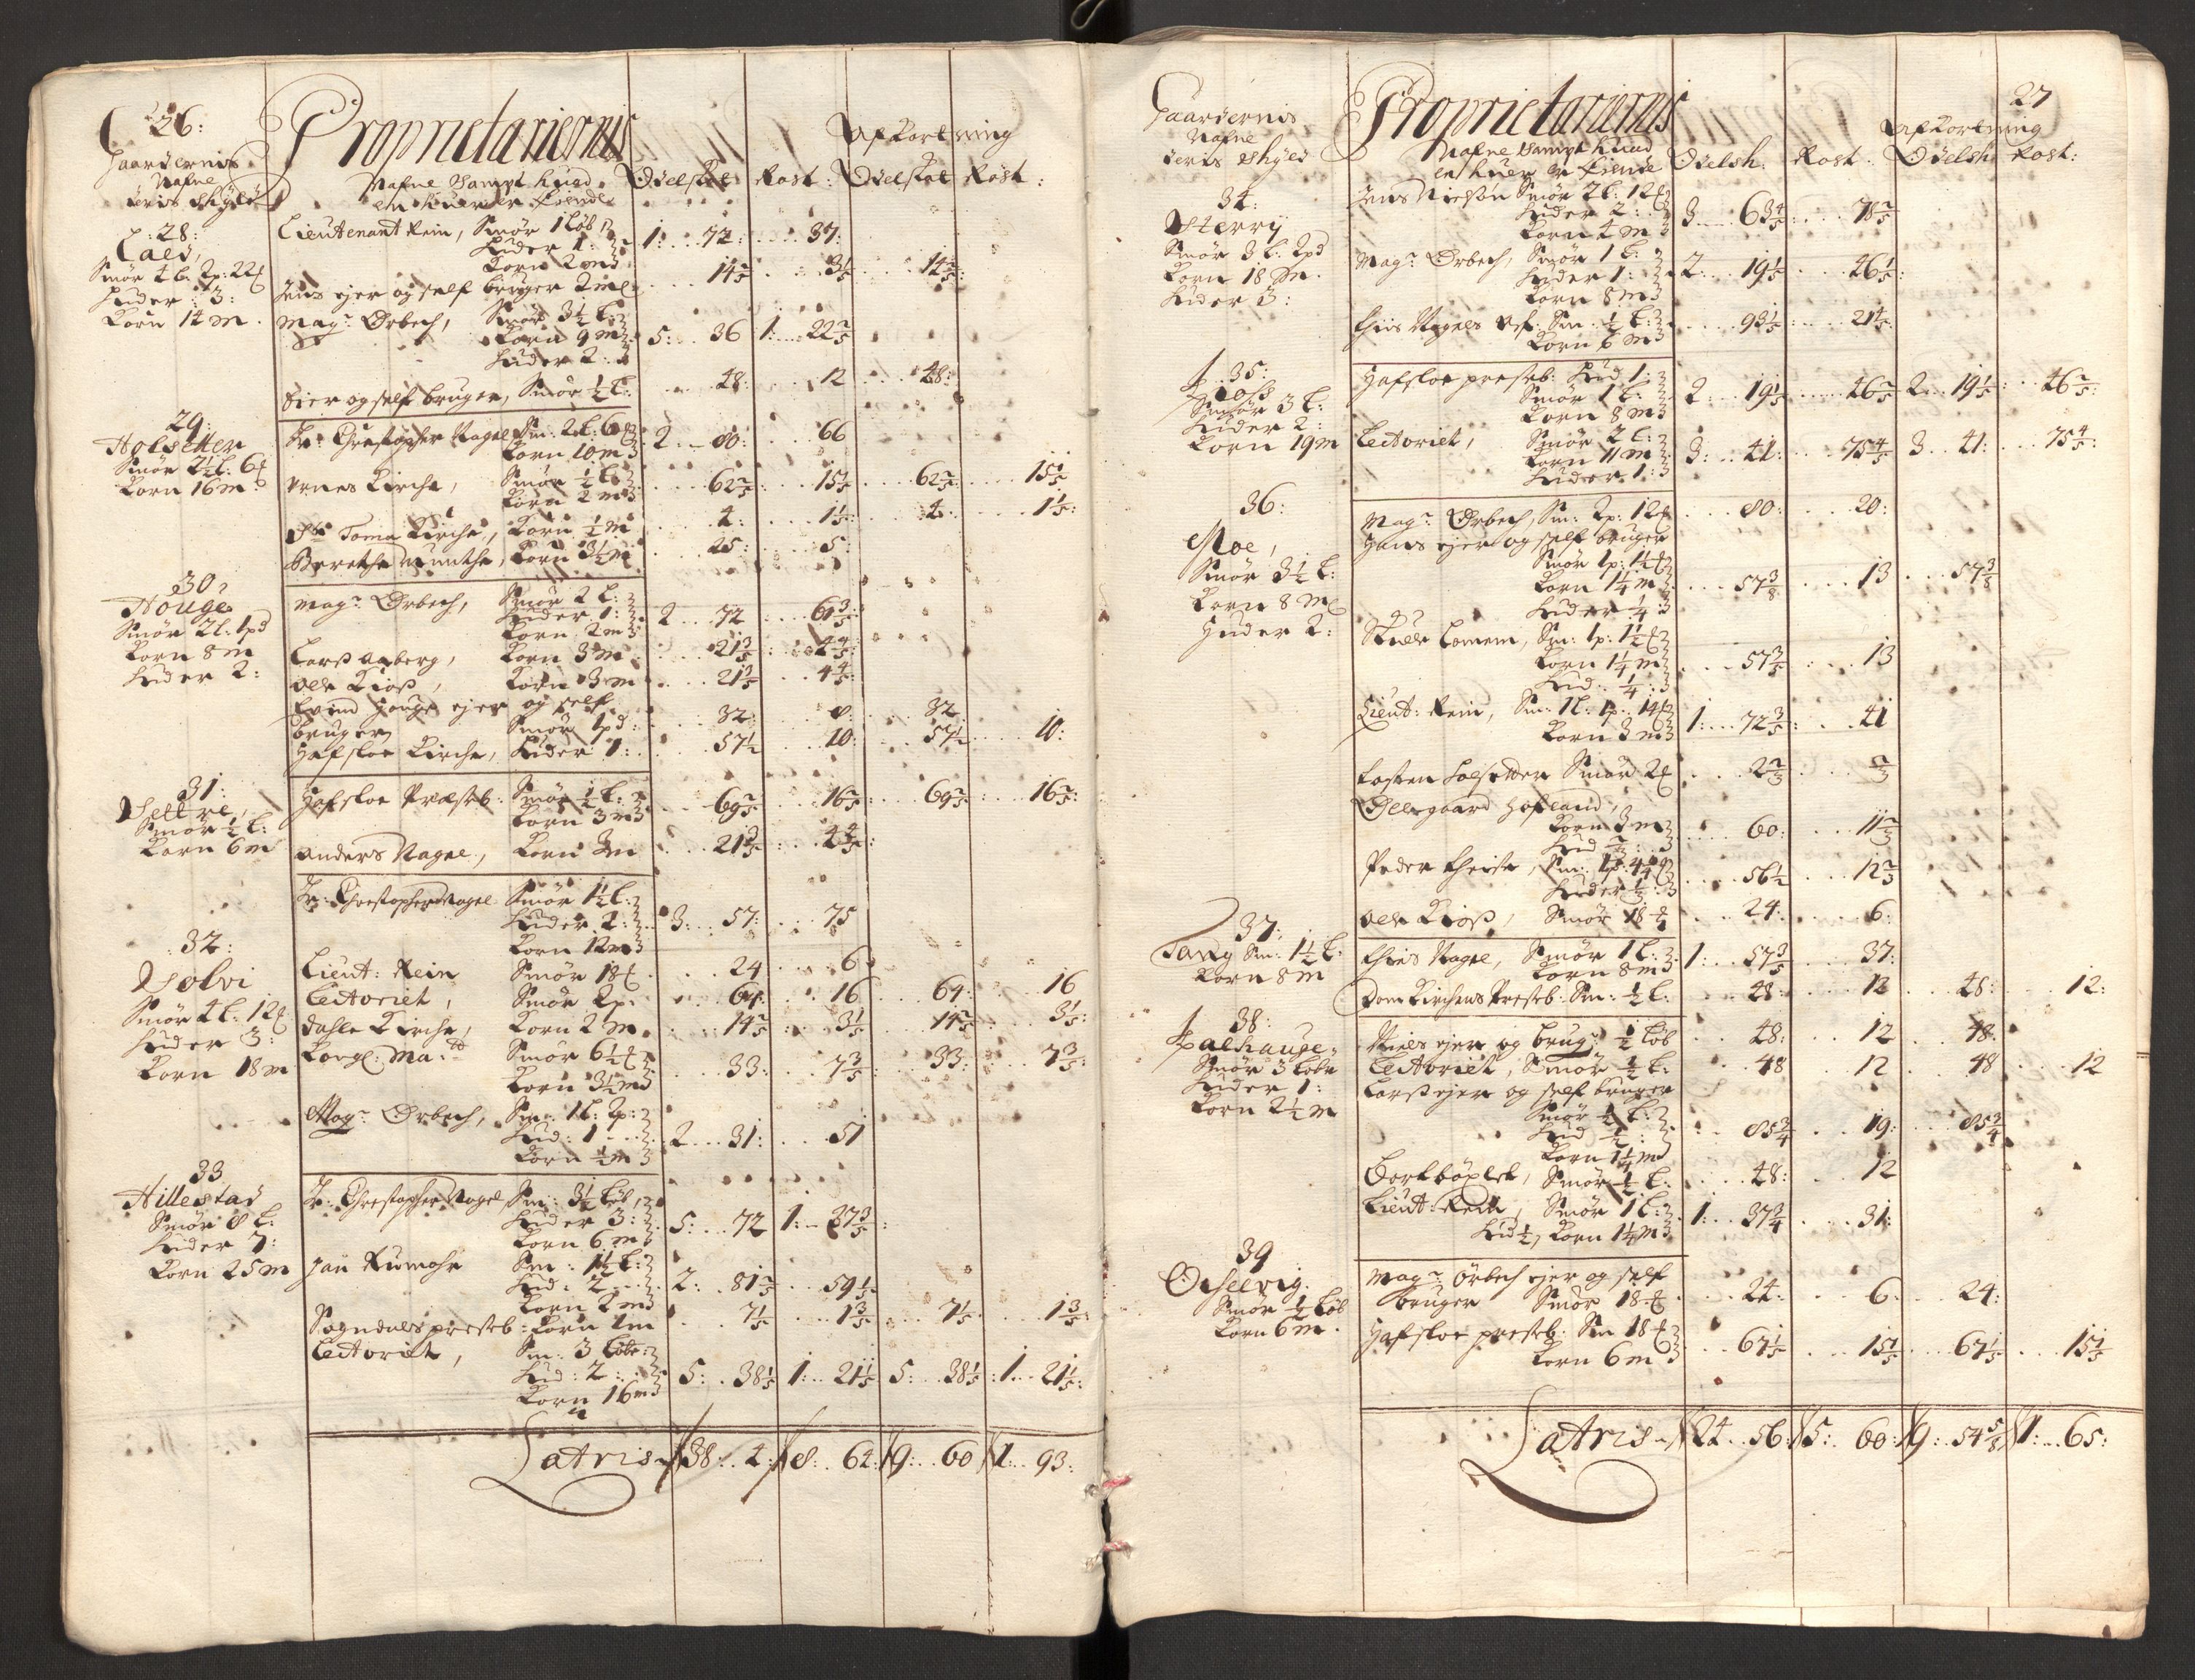 26:
Gaardernis
Nafne
deris Skyld
Proprietariernis
Nafne Sampt huad
en huer er Eiende
Afkortning
Odelskat Rost: Odelskat Rost:
28:
Smør 4 l. 2p: 22
Huder: 3:
Korn 14 m.
Lieutenant Rein, Smør 1 Løb
Huder 1:
Korn 2 m 1: 72: 37:
Jens ejer og self bruger 2 m 14 2/5 3 1/5 14 2/5:
Magr Ørbech, Smør 3 1/2 l:
Korn 9 m
Huder 2: 5: 36 1: 22 2/5
Eier og self bruger, Smør 1/2 l: 48: 12 48:
29:
Holsetter
Smør 2 1/2 l: 6
Korn 16 m
Hr: Christopher Nagel Sm: 2 l: 6
Korn 10 m 2 80: 66
Urnes Kirche, Smør 1/2 l:
Korn 2 m 62 2/5 15 1/5 62 2/5 15 1/5
Korn 1/2 m 4: 1 1/5: 4 1 1/5:
Berethe Munthe, Korn 3 1/2 m 25: 5:
30:
Houge
Smør 2 l: 1 pd
Korn 8 m
Huder 2:
Magr: Ørbech, Smør 2 l:
Huder 1:
Korn 2 m 2 72 61 3/5:
Larss Aaberg, Korn 3 m 21 3/5 4 4/5:
Ole Kioss, Korn 3 m 21 3/5 4 4/5
Evind Houge ejer og self
bruger Smør 1 pd: 32: 8: 32
Hafsloe Kirche, Huder 1: 57 1/2 10: 57 1/2 10:
31:
Settre,
Smør 1/2 l:
Korn 6 m
Hafsloe Præsteb: Smør 1/2 l:
Korn 3 m 69 2/5 16 2/5: 69 2/5: 16 2/5:
Anders Nagel, Korn 3 m 21 3/5 4 4/5:
32:
Solvi
Smør 4 l: 12
Huder 3:
Korn 18 m
Hr: Christopher Nagel Smør 1 1/2 l:
Huder 2:
Korn 12 m 3: 57: 75
Lieut: Rein Smør 18 24 6
Lectoriet, Smør 2p: 64: 16 64: 16
Dahle Kirche, Korn 2 m 14 2/5 3 1/5 14 2/5 3 1/5:
Kongl: Ma: Smør 6 1/2
Korn 3 1/2 m 33: 7 3/5 33: 7 3/5:
Magr Ørbech, Sm: 1 l: 2p:
Hud: 1
Korn 1/2 m 2 31: 51
33
Hillestad
Smør 8 l:
Huder 7:
Korn 25 m
Hr: Christopher Nagel, Sm: 3 1/2 Løb
Huder 3:
Korn 6 m 5: 72 1: 37 3/5:
Jan Rumohr Sm: 1 1/2 l:
Hud: 2
Korn 2 m 2: 81 2/5 59 1/5
Sogndals presteb: Korn 1 m 7 1/5 1 3/5 7 1/5 1 3/5:
Lectoriet, Sm: 3 Løbe:
Hud: 2:
Korn 16 m 5: 38 1/5 1: 21 1/5 5: 38 1/5: 1 21 1/5:
Latris 38: 4: 8: 64: 19: 60 1: 93:
27
Gaardernis
Nafne
deris Skyld
Proprietariernis
Nafne Sampt huad
en huer er Eiende
Afkortning
Odelsk: Rost: Odelsk Rost:
34:
Sterry
Smør 3 l: 2 pd
Korn 18 m.
Huder 3:
Jens Nielsøn Smør 2 l: 12
Huder 2:
Korn 4 m 3 63 4/5: 78 2/5
Magr Ørbech, Smør 1 l:
Huder 1:
Korn 8 m 2: 19 1/5 46 1/5:
Thiis Nagels Sm: 1/2 l:
Korn 6 m 93 1/5: 21 4/5
35:
Smør 3 l:
Huder 2:
Korn 19 m
Hafsloe presteb: Hud 1:
Smør 1 l:
Korn 8 m 2: 19 1/5 46 2/5 2 19 1/5 46 2/5:
Lectoriet, Smør 2 l:
Korn 11 m
Huder 1: 3: 41: 75 4/5 3 41: 75 4/5:
36:
Moe,
Smør 3 1/2 l:
Korn 8 m
Huder 2:
Magr: Ørbech, Sm: 2p: 12 80: 20:
Hans ejer og self bruger
Smør 1p: 1 1/2
Korn 1 1/4 m
Huder 1/4 57 3/8 13 57 3/8
Lomem, Sm: 1p: 1 1/2
Korn 1 1/4 m
Hud: 1/4 57 3/5 13
Lieut: Rein, Sm: 1 l: 1p: 14
Korn 3 m 1: 72 3/5: 41
Torsten Holsetter Smør 2 2 2/3 2/3
Ødegaard Hofland,
Korn 3 m
Hud 2/3 60: 11 2/3
Peder Theiste, Sm: 1p: 4
Huder 1/2 56 1/2 12 2/3
Ole Kioss, Smør 18 24: 6:
37:
Tang Sm: 1 1/2 l:
Korn 8 m
Thiis Nagel, Smør 1 l:
Korn 8 m 1: 57 3/5 37:
Dom Kirchens Presteb: Sm: 1/2 l: 48: 12 48: 12:
38:
Palhauge:
Smør 3 Løbe
Huder 1:
Korn 2 1/2 m
Niels ejer og brug: 1/2 Løb 48: 12 48:
Lectoriet, Smør 1/2 l: 48 12 48 12
Larss ejer og self bruger
Smør 1/2 l:
Hud 1/2:
Korn 1 1/4 m 85 3/4 19: 85 3/4
Smør 1/2 l: 48: 12
Lieut: Rein, Smør 1 l:
Hud 1/2, Korn 1 1/4 m 1: 37 3/4 31:
39
Smør 1/2 Løb
Korn 6 m.
Magr: Ørbech ejer og self
bruger Smør 18 24: 6: 24:
Hafsloe presteb: Sm 18
Korn 6 m 67 1/5 15 1/5 67 1/5 15 1/5
Latris 24 56: 5: 60: 9: 54 5/8 1: 65: